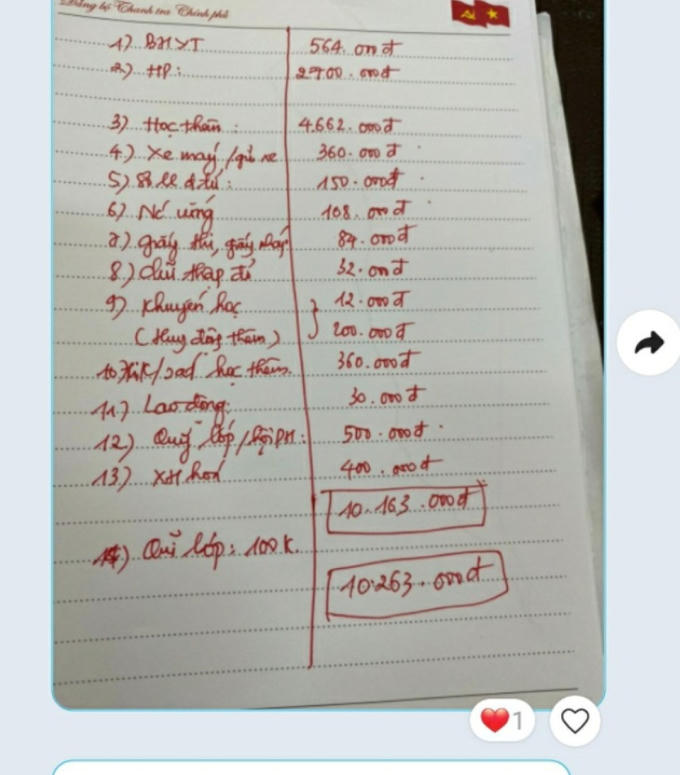 Đảng bộ Thanh tra Chính phủ
1) BHYT 564.000đ
2) HP: 2700.000đ
3) Học thêm: 4.662.000đ
4) Xe máy/gửi xe 360.000đ
5) Sổ LL đ.tử: 150.000đ
6) Nc uống 108.000đ
7) giấy thi, giấy nháp 84.000đ
8) chữ thập đỏ 32.000đ
9) Khuyến học 12.000đ
(Huy động thêm) 200.000đ
10. học thêm. 360.000đ
11) Lao động: 30.000đ
12) Quỹ lớp/hội PH: 500.000đ
13) XH hoá 400.000đ
10.163.000đ
14) Quĩ lớp: 100K.
10.263.000đ
1